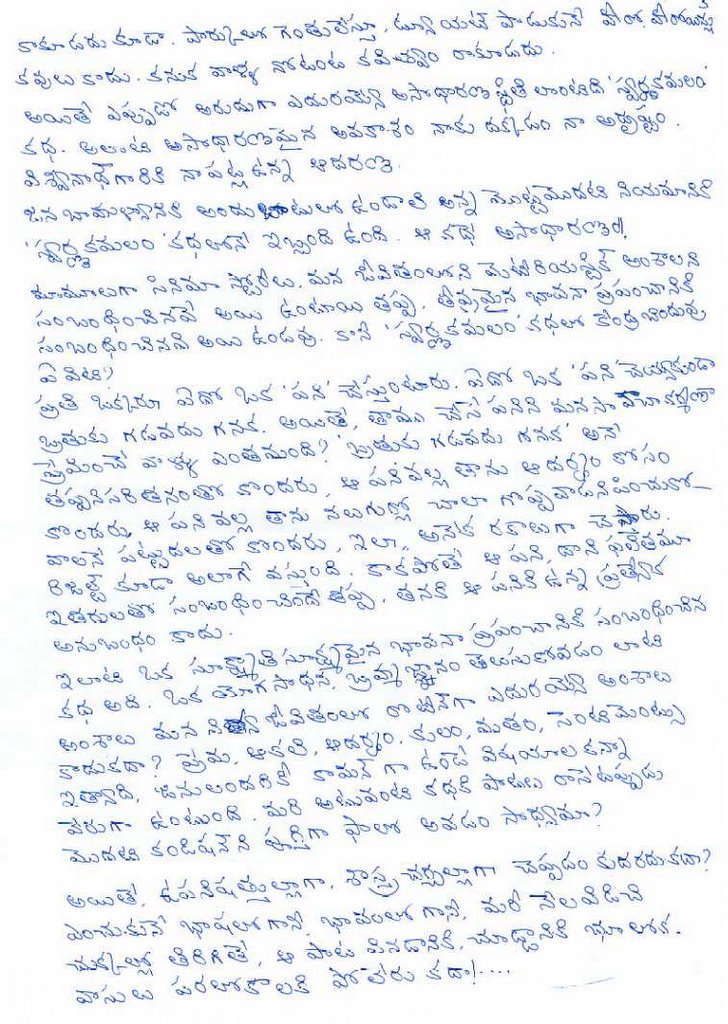 కాకూడదు కూడా. పార్కులో గెంతులేస్తూ, డ్యూయట్ పాడుకునే హీరో, హీరోయిన్లు
కవులు కాదు. కనుక వాళ్ళ నోటంట కవిత్వం రాకూడదు.
అయితే ఎప్పుడో అరుదుగా ఎదురయ్యే అసాధారణ స్థితి లాంటిది 'స్వర్ణకమలం'
కథ. అలాంటి అసాధారణమైన అవకాశం నాకు దక్కడం నా అదృష్టం.
విశ్వనాథ్‌గారికి నాపట్ల ఉన్న ఆదరణ.
జన బాహుళ్యానికి అందుబాటులో ఉండాలి అన్న మొట్టమొదటి నియమానికి
'స్వర్ణకమలం' కథలోనే ఇబ్బంది ఉంది. ఆ కథే అసాధారణం!
మామూలుగా సినిమా స్టోరీలు, మన జీవితంలోని మెటీరియలిస్టిక్ అంశాలని
సంబంధించినవే అయి ఉంటాయి తప్ప, తీవ్రమైన భావనా ప్రపంచానికి
సంబంధించినవి అయి ఉండవు. కానీ 'స్వర్ణకమలం' కథలో కేంద్రబిందువు
ఏమిటి?
ప్రతి ఒక్కరూ ఏదో ఒక 'పని' చేస్తుంటారు. ఏదో ఒక 'పని' చెయ్యకుండా
బ్రతుకు గడవదు గనక. అయితే, తాము చేసే పనిని మనసా వాచా కర్మణా
ప్రేమించే వాళ్ళు ఎంతమంది? 'బ్రతుకు గడవదు గనక' అనే
తప్పనిసరితనంతో కొందరు, ఆ పనివల్ల తాను ఆదర్శం కోసం
కొందరు, ఆ పనివల్ల తాను నలుగుర్లో చాలా గొప్పవాడనిపించుకో-
వాలనే పట్టుదలతో కొందరు, ఇలా అనేక రకాలుగా చేస్తారు.
రిజల్ట్ కూడా అలాగే వస్తుంది. కాకపోతే ఆ పని, దాని ఫలితమూ
ఇతరులతో సంబంధించిందే తప్ప, తనకి ఆ పనికి ఉన్న ప్రత్యేక
అనుబంధం కాదు.
ఇలాటి ఒక సూక్ష్మాతిసూక్ష్మమైన భావనా ప్రపంచానికి సంబంధించిన
కథ అది. ఒక యోగ సాధన, బ్రహ్మజ్ఞానం తెలుసుకోవడం లాటి
అంశాలు మన నిత్య జీవితంలో రొటీన్‌గా ఎదురయ్యే అంశాలు
కాదుకదా? ప్రేమ, ఆకలి, ఆదర్శం, కులం, మతం, సెంటిమెంట్సు
ఇత్యాది, జనులందరికీ కామన్ గా ఉండే విషయాల ఉన్నా
వేరుగా ఉంటుంది. మరి అటువంటి కథకి పాటలు రాసేటప్పుడు
మొదటి కండిషన్‌ని పూర్తిగా ఫాలో అవడం సాధ్యమా?
అయితే, ఉపనిషత్తుల్లాగా, శాస్త్ర చర్చల్లాగా చెప్పడం కుదరదుకదా?
ఎంచుకునే భాషలోగానీ, భావంలోగానీ, మరీ నేలవిడిచి
చుక్కల్లో తిరిగితే, ఆ పాట వినడానికి, చూడ్డానికి భూలోక-
వాసులు పరలోకాలకి పోలేరు కదా!....